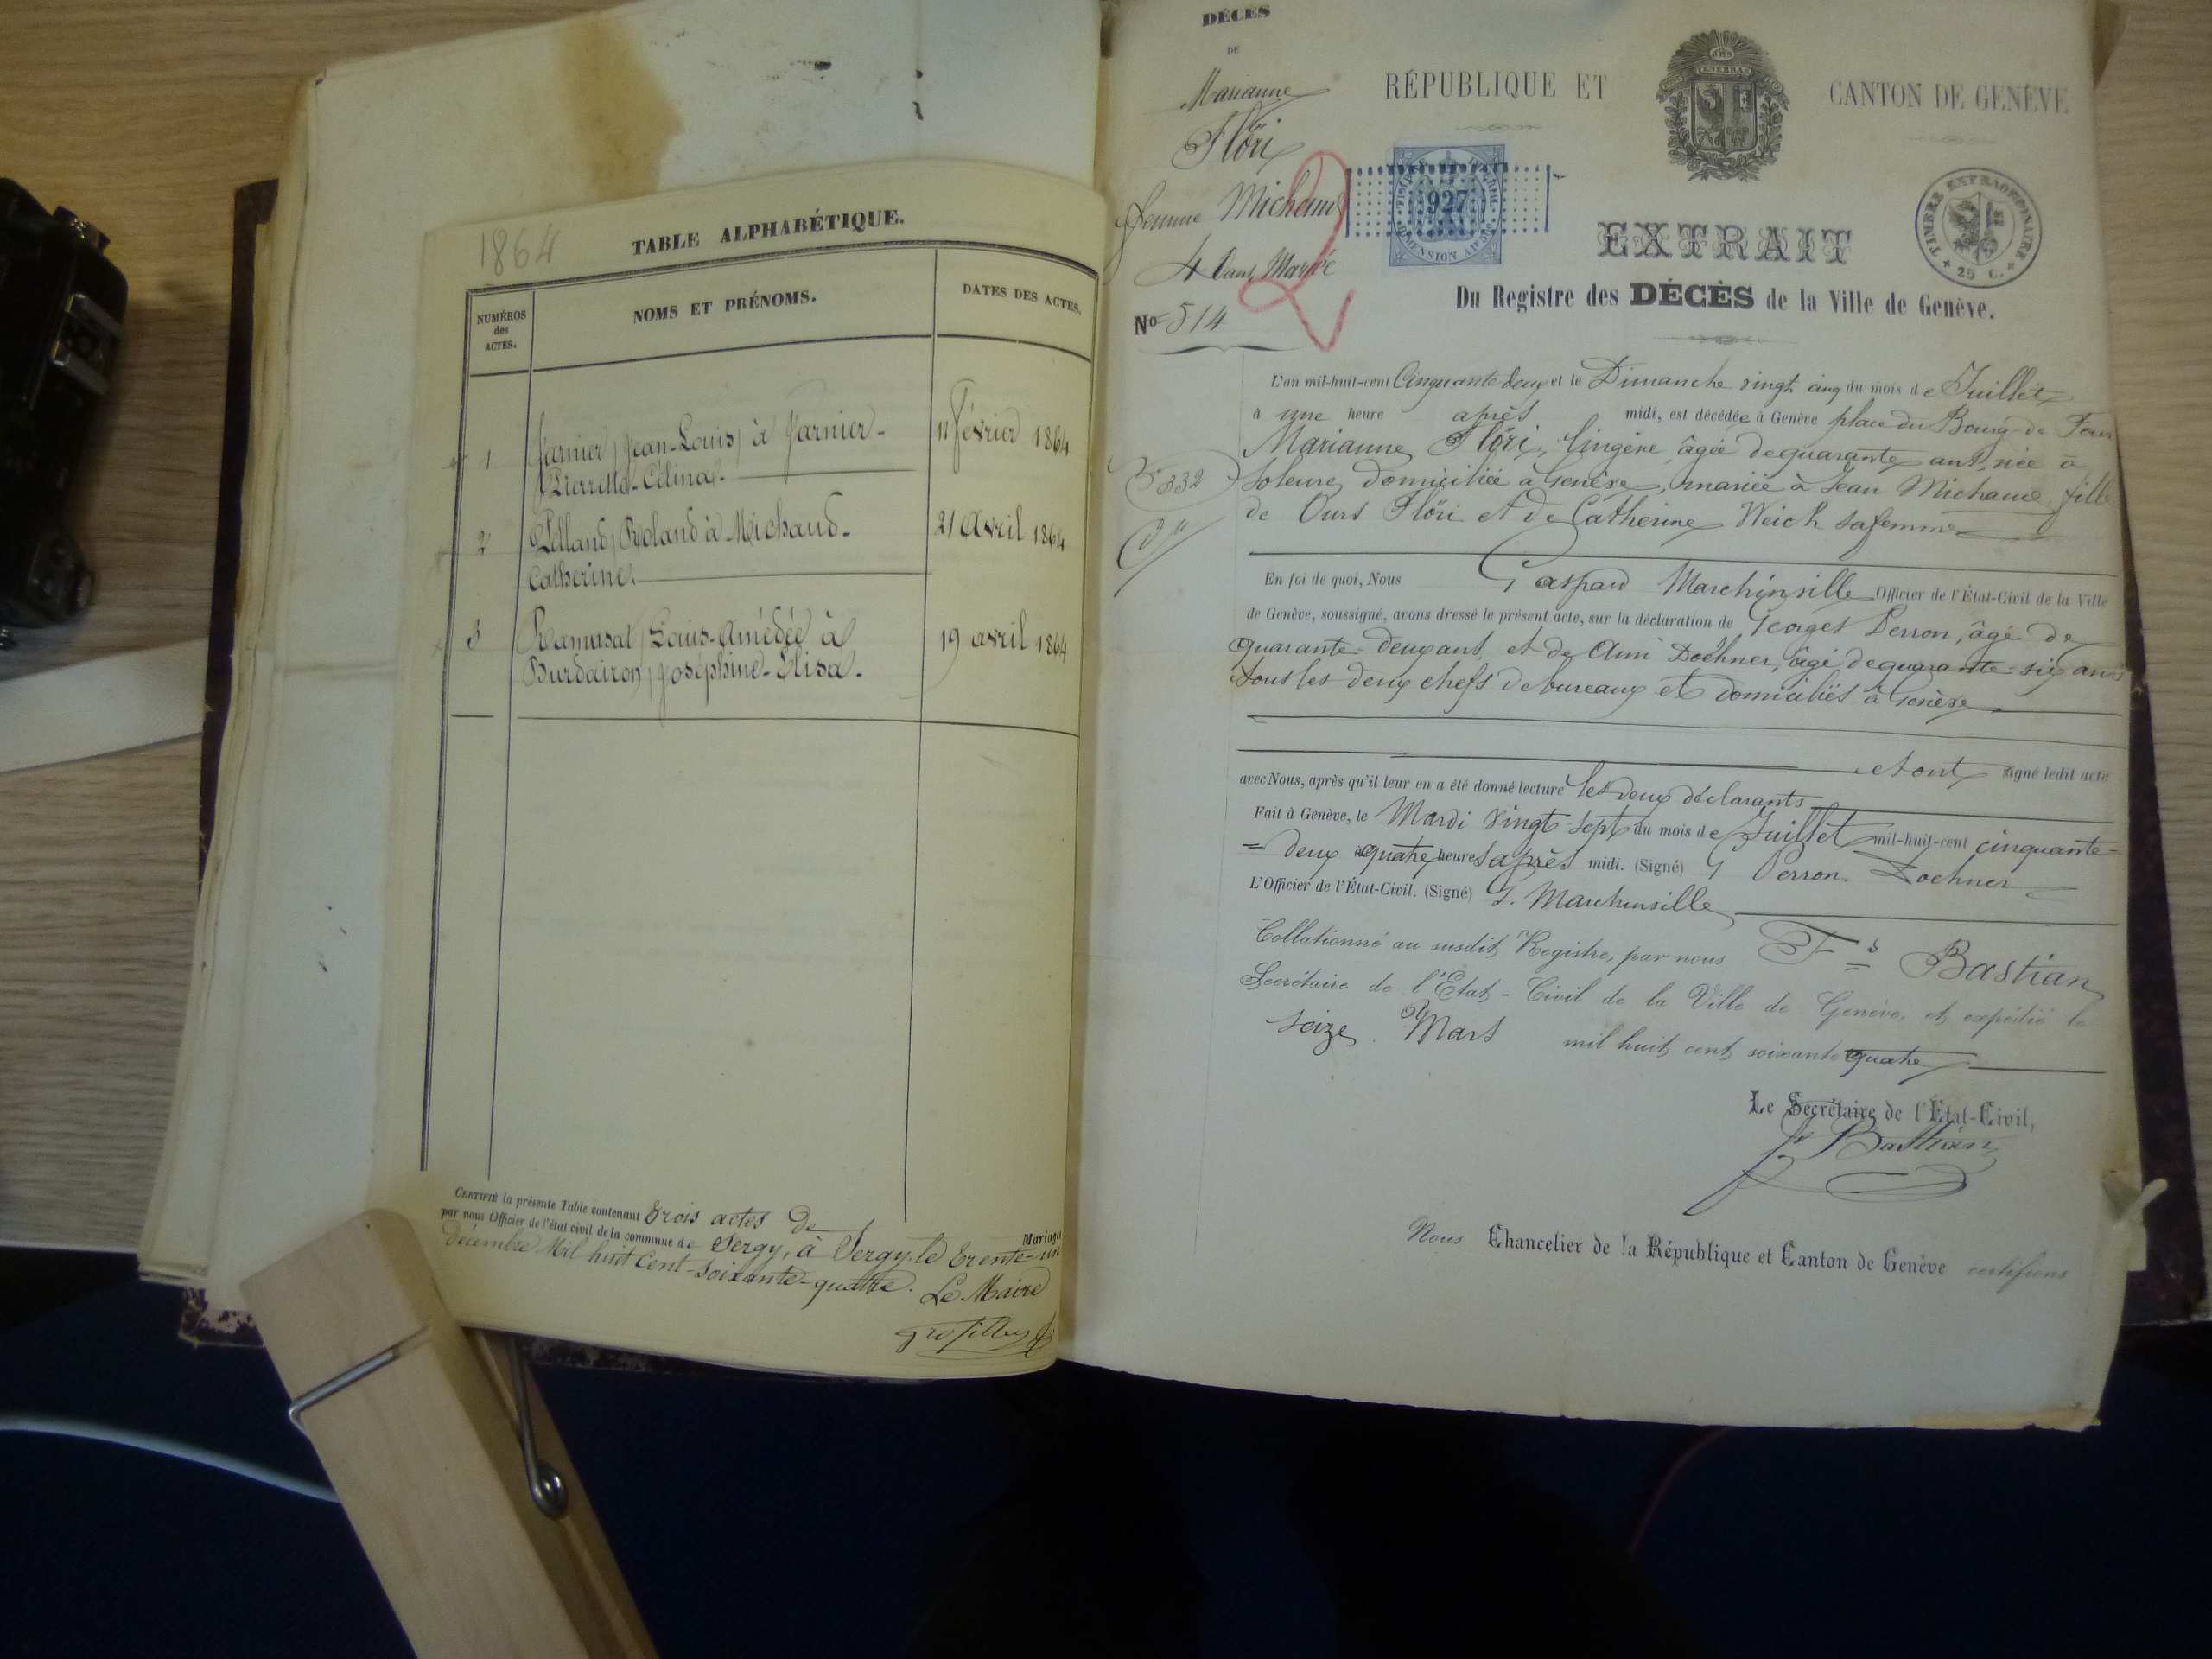 1864
TABLE ALPHABÉTIQUE.
NUMÉROS des ACTES.
NOMS ET PRÉNOMS.
DATES DES ACTES.
1 Jean-Louis à
11 Février 1864
Pierrette-Célina.
2 Pelland, Roland à Michaud-
21 Avril 1864
Catherine.
3 Ramusat, Louis-Amédée à
19 avril 1864
Burdairon, Joséphine-Elisa.
CERTIFIÉ la présente Table contenant trois actes de Mariages
par nous Officier de l'état civil de la commune de Sergy, à Sergy, le trente-un
décembre Mil huit Cent-soixante-quatre. Le Maire
DÉCÈS
DE
Marianne
Flöri
femme Michaud
4 Cant Mariée
No 514
RÉPUBLIQUE ET
CANTON DE GENÈVE
927
TIMBRE EXTRAORDINAIRE
25 C.
EXTRAIT
Du Registre des DÉCÈS de la Ville de Genève.
L'an mil-huit-cent Cinquante deux et le Dimanche vingt cinq du mois de Juillet
à une heure après midi, est décédée à Genève place du Bourg de Four
Marianne Flöri, lingère, âgée de quarante ans, née à
Soleure, domiciliée à Genève, mariée à Jean Michaud, fille
de Ours Flöri et de Catherine Weich sa femme
332
En foi de quoi, Nous Gaspard Marchinville Officier de l'État-Civil de la Ville
de Genève, soussigné, avons dressé le présent acte, sur la déclaration de Georges Perron, âgé de
quarante-deux ans, et de Ami Dochner, âgé de quarante-six ans
tous les deux chefs de bureaux et domiciliés à Genève
et ont signé ledit acte
avec Nous, après qu'il leur en a été donné lecture les deux déclarants
Fait à Genève, le Mardi vingt sept du mois de Juillet mil-huit-cent cinquante-
= deux à quatre heures après midi. (Signé) G Perron. Dochner
L'Officier de l'État-Civil. (Signé) G. Marchinville
Collationné au susdit Registre, par nous Fs Bastian
Secrétaire de l'Etat-Civil de la Ville de Genève, et expédié le
seize Mars mil huit cent soixante quatre
Le Secrétaire de l'État-Civil,
Fs Bastian
Nous Chancelier de la République et Canton de Genève certifions